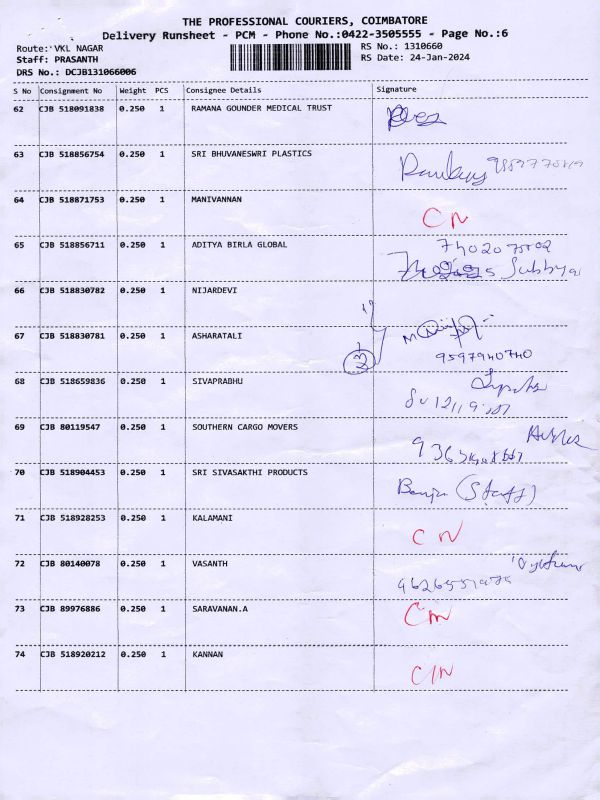 THE PROFESSIONAL COURIERS, COIMBATORE
Delivery Runsheet - PCM - Phone No.:0422-3505555 - Page No.:6
Route: VKL NAGAR RS No.: 1310660
Staff: PRASANTH RS Date: 24-Jan-2024
DRS No.: DCJB131066006
S No Consignment No Weight PCS Consignee Details Signature
62 CJB 518091838 0.250 1 RAMANA GOUNDER MEDICAL TRUST
63 CJB 518856754 0.250 1 SRI BHUVANESWRI PLASTICS
64 CJB 518871753 0.250 1 MANIVANNAN CN
65 CJB 518856711 0.250 1 ADITYA BIRLA GLOBAL
66 CJB 518830782 0.250 1 NIJARDEVI
67 CJB 518830781 0.250 1 ASHARATALI
9597940740
68 CJB 518659836 0.250 1 SIVAPRABHU
69 CJB 80119547 0.250 1 SOUTHERN CARGO MOVERS
70 CJB 518904453 0.250 1 SRI SIVASAKTHI PRODUCTS (Staff)
71 CJB 518928253 0.250 1 KALAMANI CN
72 CJB 80140078 0.250 1 VASANTH
73 CJB 89976886 0.250 1 SARAVANAN.A CN
74 CJB 518920212 0.250 1 KANNAN CN